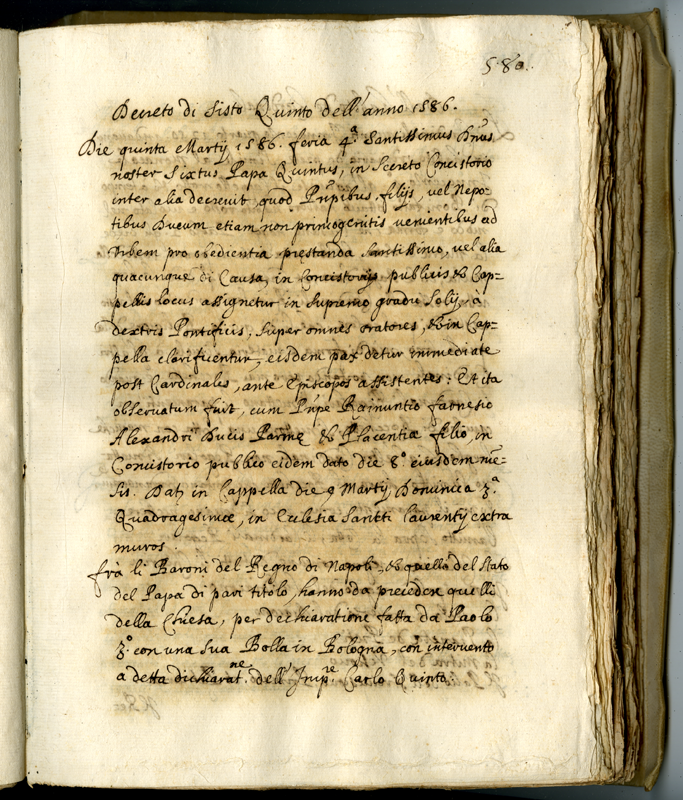 580.
Decreto di Sisto Quinto dell'anno 1586.
Die quinta Martij 1586. feria 4.ª Santissimus Dñus
noster Sixtus Papa Quintus, in Secreto Concistorio
inter alia decrevit, quod Pñpibus, filijs, vel Nepo-
tibus Ducum etiam non primogenitis venientibus ad
Urbem pro obedientia prestanda Santissimo, vel alia
quacunque di Causa, in Concistorijs publicis & Cap-
pellis locus assignetur in supremo gradu Solij, à
dextris Pontificis, super omnes oratores, & in Cap-
pella eisdem pax detur immediate
post Cardinales, ante Episcopos assistentes; Et ita
observatum fuit, cum Pñpe Rainuntio farnesio
Alexandri Ducis Parme & Placentiæ filio, in
Concistorio publico eidem dato die 8.º eiusdem mẽ-
sis. in Cappella die 9 Martij Dominica 3.ª
Quadragesimæ, in Eclesia Santti Laurentij extra
muros.
frà li Baroni del Regno di Napoli, & quella del Stato
del Papa di pari titolo, hanno da preceder quelli
della Chiesa, per dechiaratione fatta da Paolo
3.º con una sua Bolla in Bologna, con intervento
a detta dichiarat.ne dell'Imp.re Carlo Quinto.